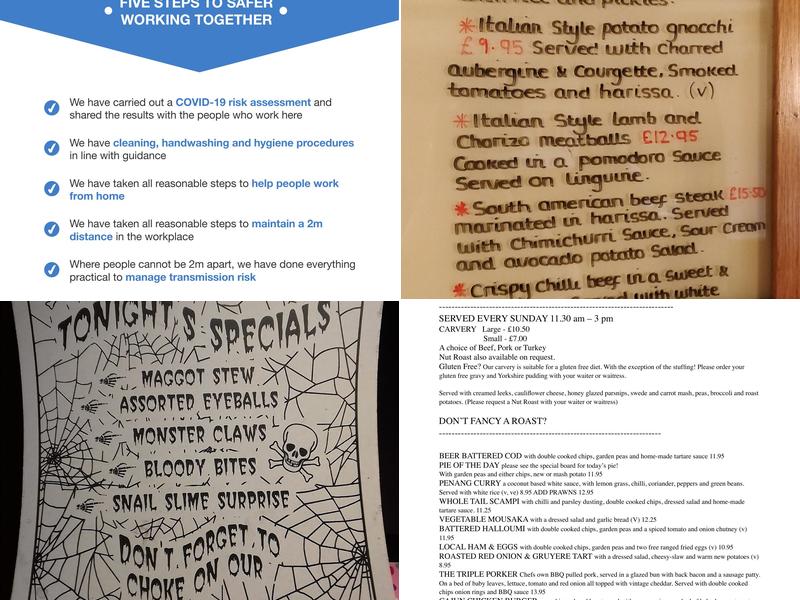 FIVE STEPS TO SAFER
WORKING TOGETHER
We have carried out a COVID-19 risk assessment and
shared the results with the people who work here
We have cleaning, handwashing and hygiene procedures
in line with guidance
We have taken all reasonable steps to help people work
from home
We have taken all reasonable steps to maintain a 2m
distance in the workplace
Where people cannot be 2m apart, we have done everything
practical to manage transmission risk
rice and pickles.
*Italian Style potato gnocchi
£9.95 Served with Charred
aubergine & Courgette, Smoked
tomatoes and harissa. (v)
*Italian Style lamb and
Chorizo meatballs £12.95
Cooked in a pomodoro Sauce
Served on linguine.
*South american beef steak £15.50
marinated in harissa. Served
with Chimichurri Sauce, Sour Cream
and avocado potato Salad.
*Crispy chilli beef in a Sweet &
with white
TONIGHT'S SPECIALS
MAGGOT STEW
ASSORTED EYEBALLS
MONSTER CLAWS
BLOODY BITES
SNAIL SLIME SURPRISE
DON'T FORGET TO
CHOKE ON OUR
SERVED EVERY SUNDAY 11.30 am – 3 pm
CARVERY Large - £10.50
Small - £7.00
A choice of Beef, Pork or Turkey
Nut Roast also available on request.
Gluten Free? Our carvery is suitable for a gluten free diet. With the exception of the stuffing! Please order your
gluten free gravy and Yorkshire pudding with your waiter or waitress.
Served with creamed leeks, cauliflower cheese, honey glazed parsnips, swede and carrot mash, peas, broccoli and roast
potatoes. (Please request a Nut Roast with your waiter or waitress)
DON'T FANCY A ROAST?
BEER BATTERED COD with double cooked chips, garden peas and home-made tartare sauce 11.95
PIE OF THE DAY please see the special board for today's pie!
With garden peas and either chips, new or mash potato 11.95
PENANG CURRY a coconut based white sauce, with lemon grass, chilli, coriander, peppers and green beans.
Served with white rice (v, ve) 8.95 ADD PRAWNS 12.95
WHOLE TAIL SCAMPI with chilli and parsley dusting, double cooked chips, dressed salad and home-made
tartare sauce. 11.25
VEGETABLE MOUSAKA with a dressed salad and garlic bread (V) 12.25
BATTERED HALLOUMI with double cooked chips, garden peas and a spiced tomato and onion chutney (v)
11.95
LOCAL HAM & EGGS with double cooked chips, garden peas and two free ranged fried eggs (v) 10.95
ROASTED RED ONION & GRUYERE TART with a dressed salad, cheesy-slaw and warm new potatoes (v)
8.95
THE TRIPLE PORKER Chefs own BBQ pulled pork, served in a glazed bun with back bacon and a sausage patty.
On a bed of baby leaves, lettuce, tomato and red onion all topped with vintage cheddar. Served with double cooked
chips onion rings and BBQ sauce 13.95
CAJUN CHICKEN BURGER